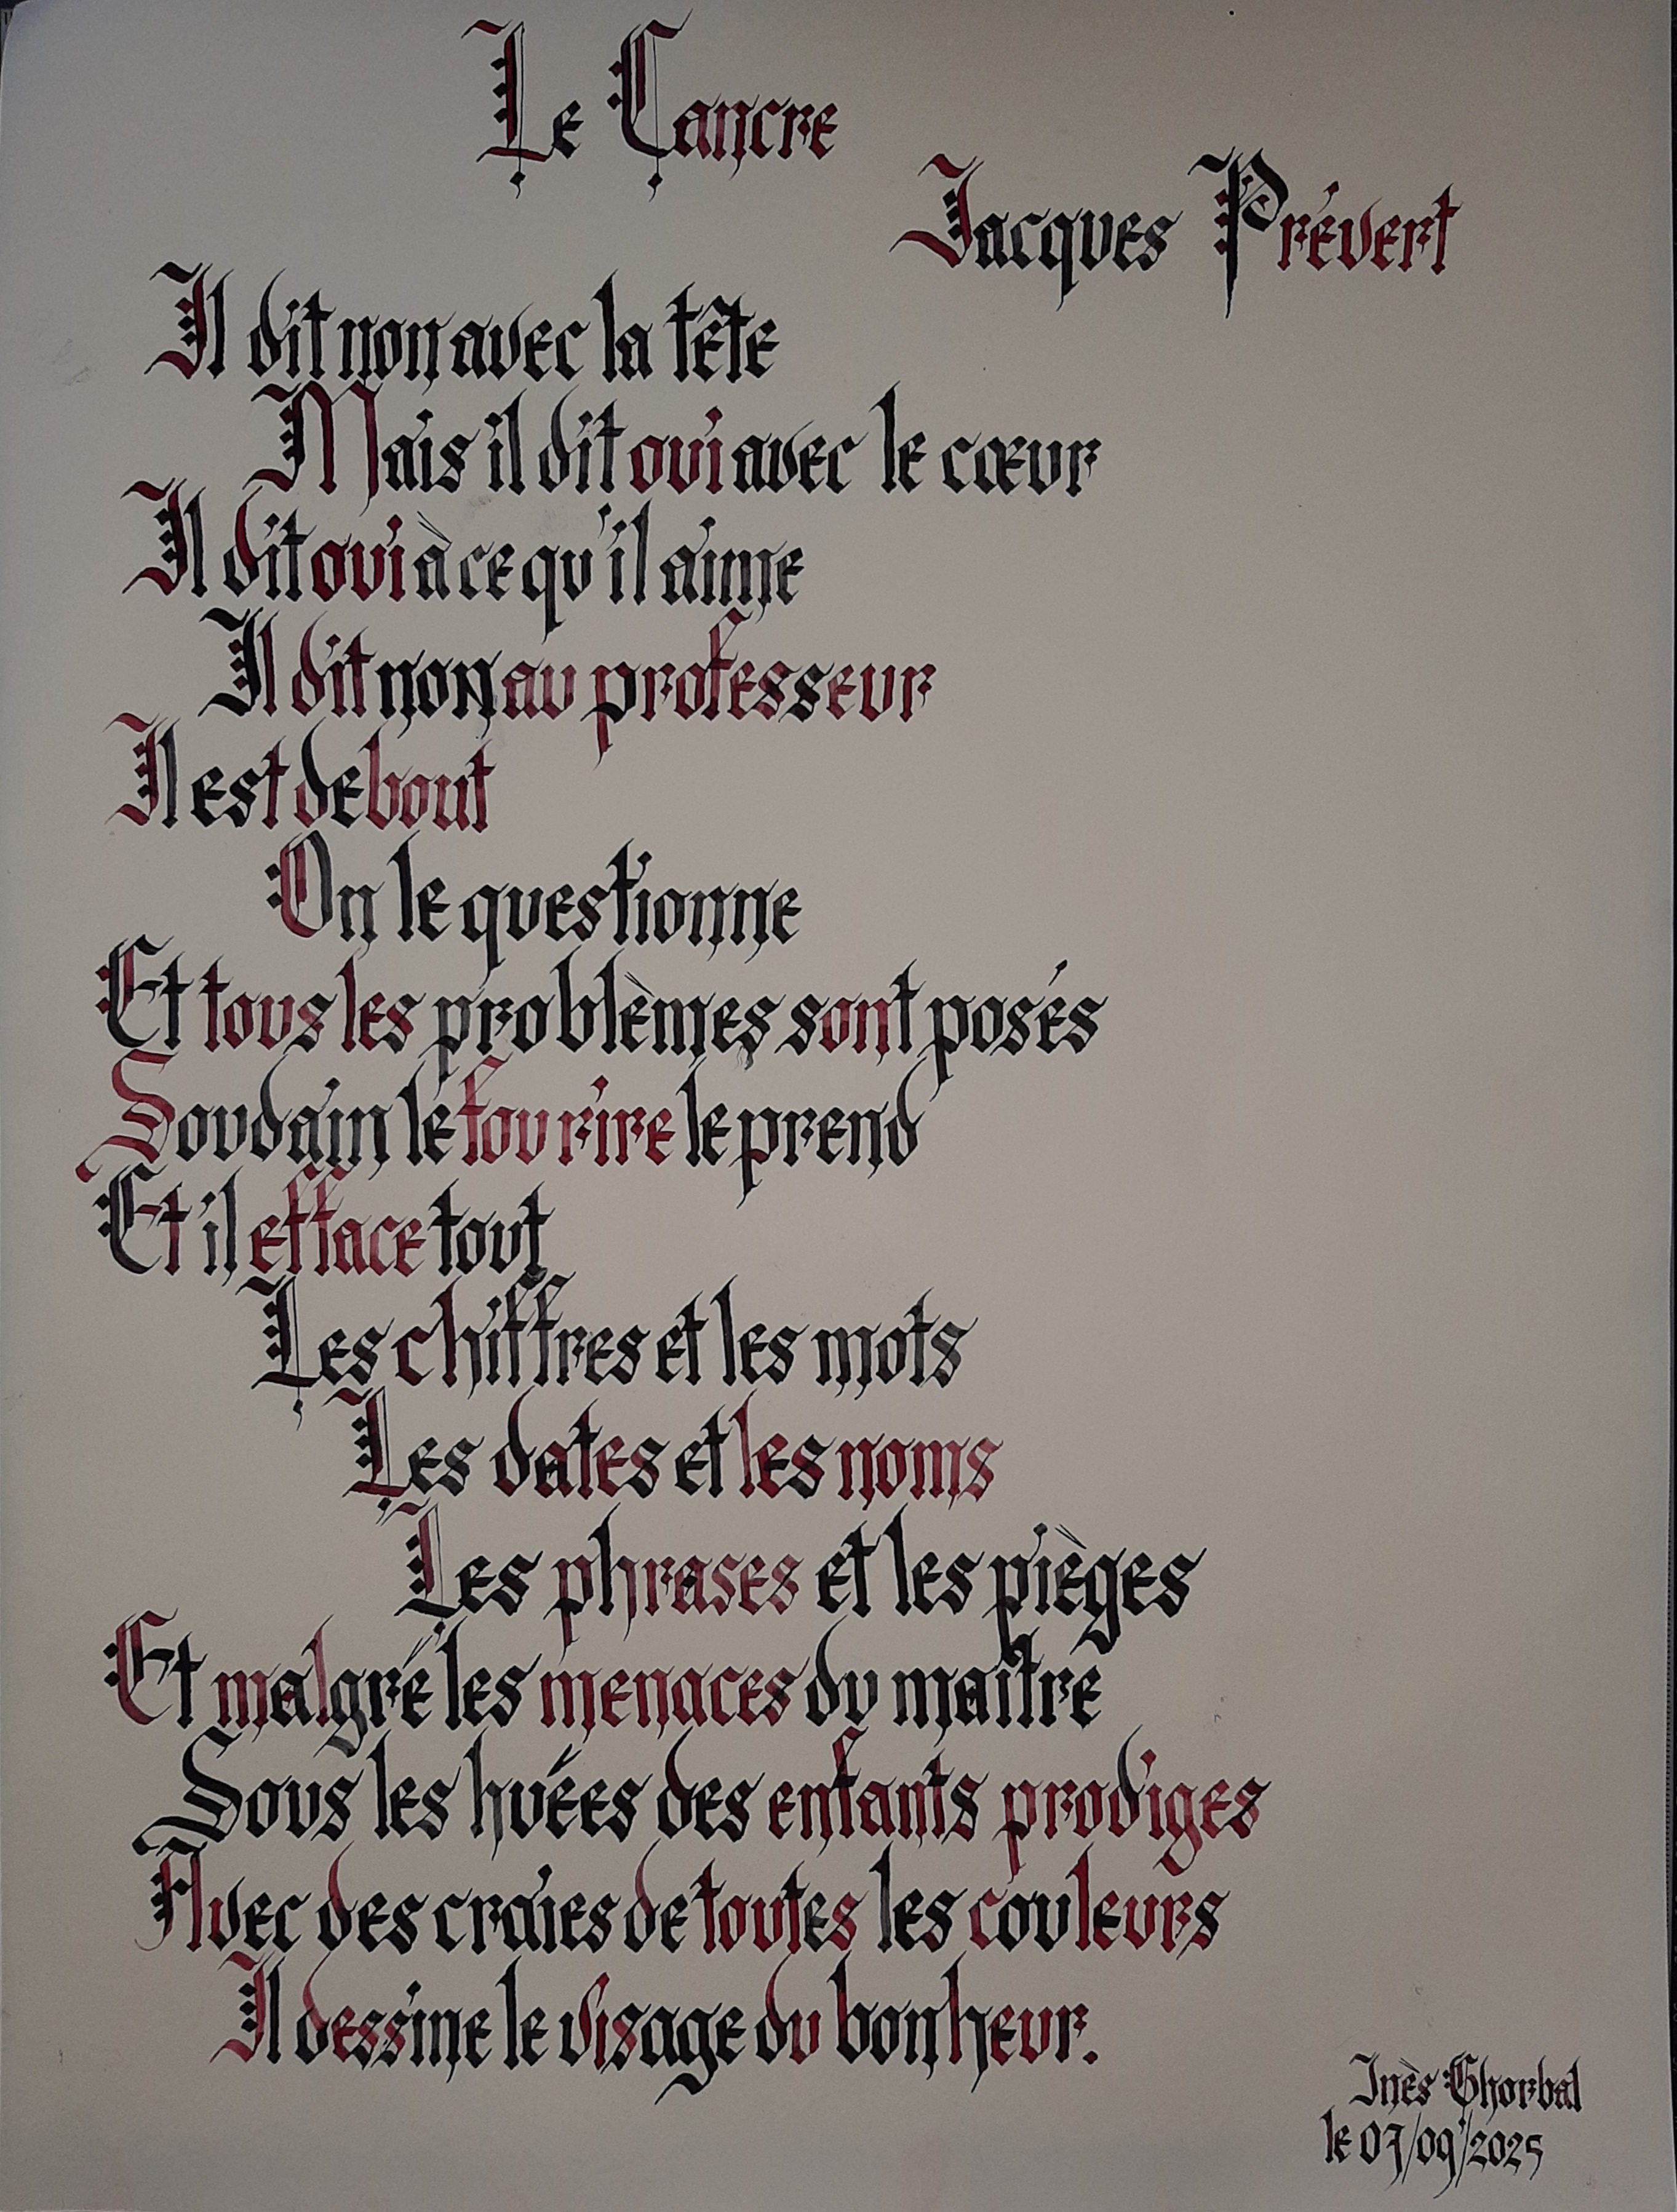 Le Cancre
Jacques Prévert
Il dit non avec la tête
Mais il dit oui avec le cœur
Il dit oui à ce qu'il aime
Il dit non au professeur
Il est debout
On le questionne
Et tous les problèmes sont posés
Soudain le fou rire le prend
Et il efface tout
Les chiffres et les mots
Les dates et les noms
Les phrases et les pièges
Et malgré les menaces du maître
Sous les huées des enfants prodiges
Avec des craies de toutes les couleurs
Il dessine le visage du bonheur.
Inès Ghorbal
le 07/09/2025